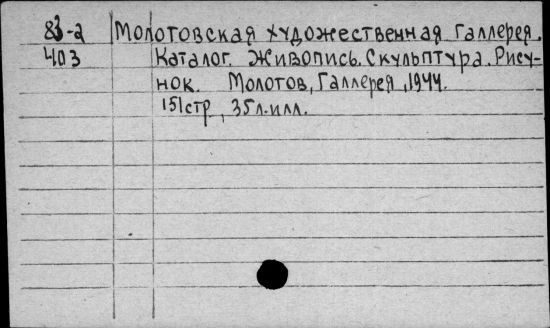 83-2 Молотовская художественная галлерея.
403 Каталог. Живопись. Скульптура. Рису-
нок. Молотов, Галлерея, 1944.
151 стр, 35 л. илл.